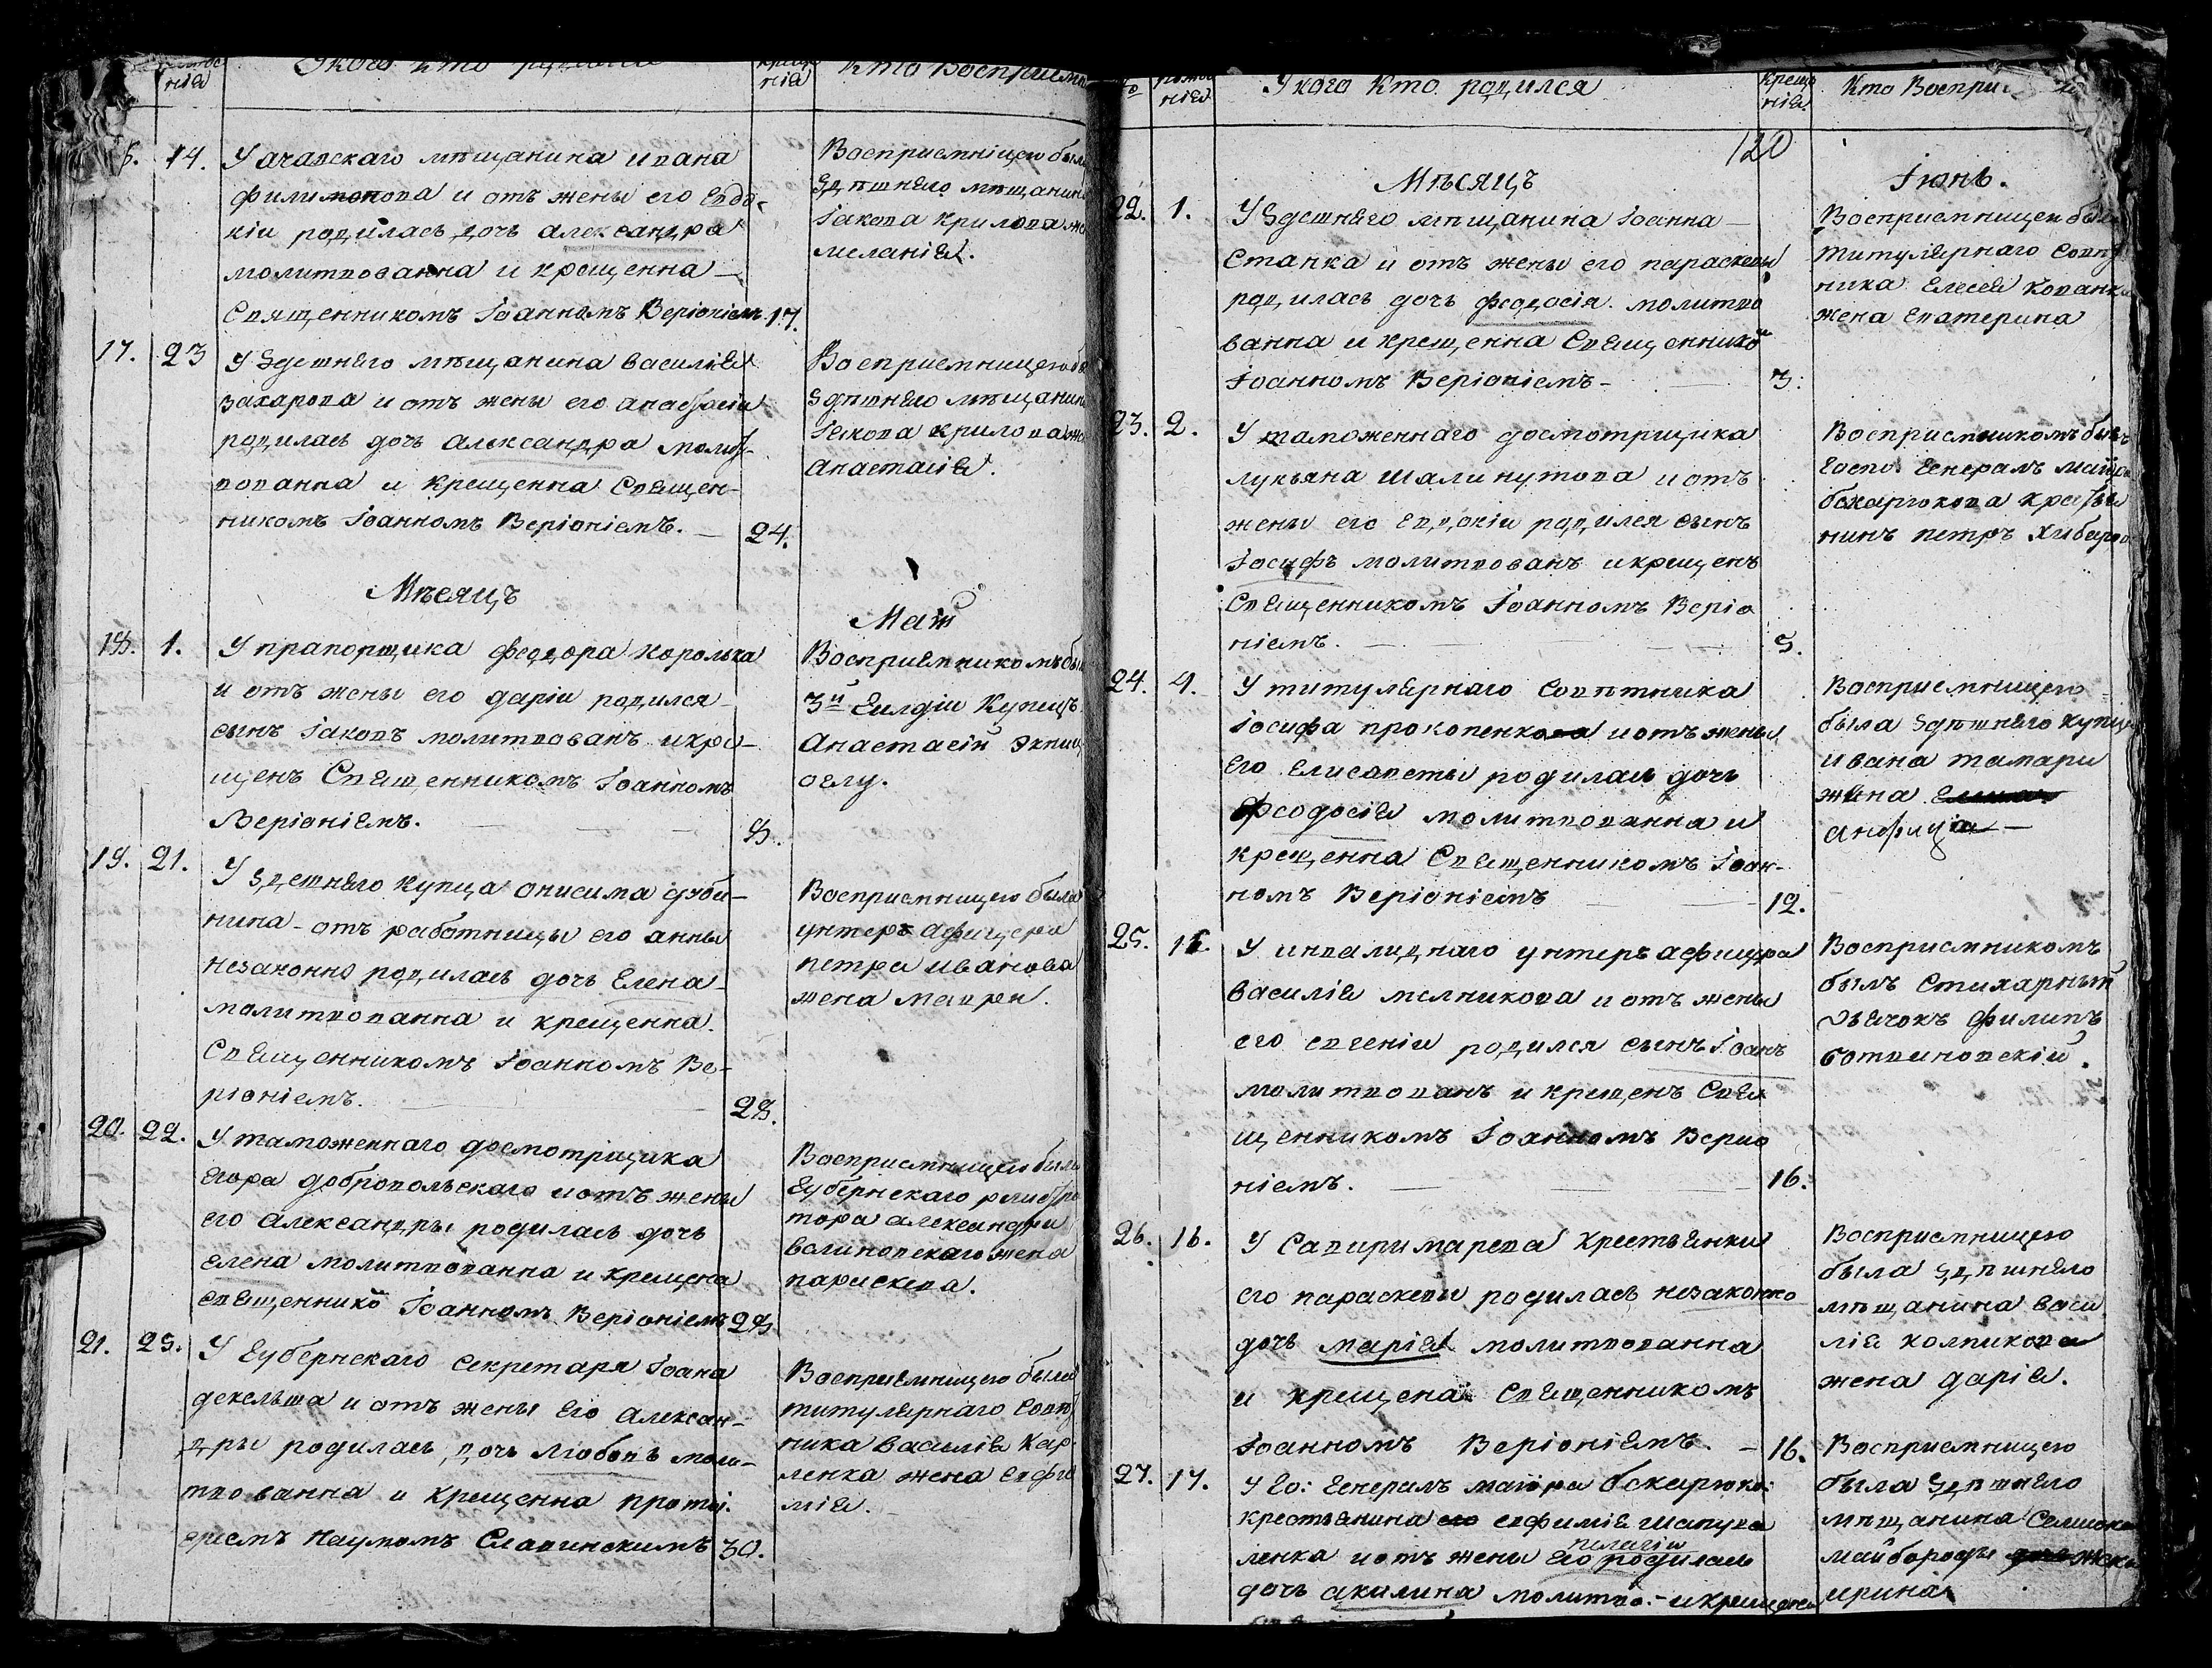 нія
У кого кто
нія
Кто Восприемн
14.
У ачавскаго мѣщанина ивана
филимонова и отъ жены его Евдо-
кіи родилась дочь александра
молитвованна и крещенна
Священникомъ Іоанномъ Веріоніемъ 17.
Восприемніцею был
Здѣшняго мѣщанин
Іакова Крилова же
меланія.
17. 23
У Здешняго мѣщанина василія
захарова и отъ жены его анастасіи
родилась дочь александра молит-
вованна и крещенна Священ-
никомъ Іоанномъ Веріоніемъ. 24.
Восприемницею бы
Здѣшняго мѣщанин
Іякова крилова же
анастасія.
Мѣсяцъ
Маій
18. 1.
У прапорщика феодора королька
и отъ жены его даріи родился
сынъ Іаковъ молитвованъ и кре-
щенъ Священникомъ Іоанномъ
Веріоніемъ. 8.
Восприемникомъ бы
3й Гилдіи Купецъ
Анастасій
оглу.
19. 21.
У здешняго купца онисима
нина отъ работницы его анны
незаконно родилась дочь Елена
молитвованна и крещенна
Священникомъ Іоанномъ Ве-
ріоніемъ. 28.
Восприемницею была
унтеръ афицера
петра иванова
жена мавра.
20. 22.
У таможеннаго досмотрщика
Егора добровольскаго и отъ жены
его александры родилась дочь
елена молитвованна и крещена
священнико Іоанномъ Веріоніемъ 28.
Восприемницею была
Губернскаго регистра
тора александра
валиновскаго жена
параскева.
21. 25.
У Губернскаго Секретаря Іоана
декельша и отъ жены Его Алексан-
дры родилась дочь Любовь моли-
твованна и крещенна протоі-
ереемъ Наумомъ Славинскимъ 30.
Восприемницею была
титулярнаго Совѣт
ника василія Кар-
ленка жена евфи
мія.
нія
У кого Кто родился
Креще
нія
Кто Воспри
120
Мѣсяцъ
Іюнь.
22. 1.
У Здешняго мѣщанина Іоанна
Станка и отъ жены его параскевы
родилась дочь феодосія молитво
ванна и крещенна Священнико
Іоанномъ Веріоніемъ 3.
Восприемницею была
титулярнаго Совѣт
ника Елесея кованка
жена екатерина
23. 2.
У таможеннаго досмотрщика
лукьяна шалинутова и отъ
жены его евдокіи родился сынъ
Іосифъ молитвованъ и крещенъ
Священникомъ Іоанномъ Веріо
ніемъ. 5.
Восприемникомъ былъ
Госпо. Генералъ маіора
бокарюкова крестья
нинъ петръ
24. 4.
У титулярнаго Совѣтника
Іосифа прокопенко и отъ жены
его Елисаветы родилась дочь
Феодосія молитвованна и
крещенна Священникомъ Іоан-
номъ Веріоніемъ 12.
Восприемницею
была здѣшняго купца
ивана тамары
жена
анфица
25. 15.
У инвалиднаго унтеръ афицера
василія мелникова и отъ жены
его евгеніи родился сынъ Іоанъ
молитвованъ и крещенъ Свя
щенникомъ Іоанномъ Верио
ніемъ. 16.
Восприемникомъ
былъ Стихарный
Дьячокъ филипъ
ботвиновскій.
26. 16.
У Савири марева крестьянки
его параскевы родилась незаконно
дочь марія молитвованна
и крещена Священникомъ
Іоанномъ Веріоніемъ. 16.
Восприемницею
была здѣшняго
мѣщанина васи
лія колпикова
жена дарія.
27. 17.
У Го: Генералъ маіора бокарюко:
крестьянина евфимія шапува
ленка и отъ жены Его пелагіи родилась
дочь акилина молитво: и крещена
Восприемницею
была Здѣшняго
мѣщанина
майбороды жена
ирина